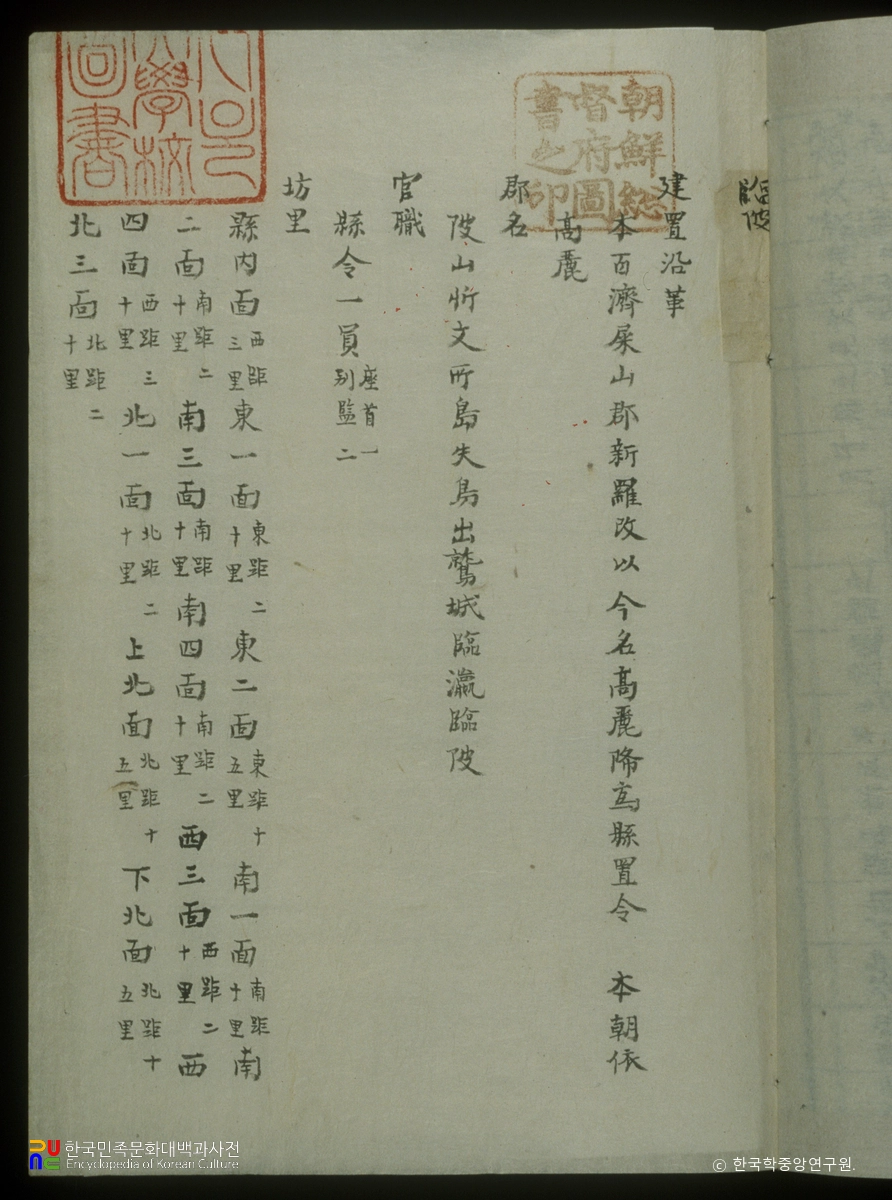 臨陂
朝鮮総
督府圖
書之印
建置沿革
本百濟屎山郡新羅改以今名高麗降為縣置令 本朝依
高麗
郡名
陂山忻文所島失島出鷲城臨瀛臨陂
官職
縣令一員座首一別監二
坊里
縣內面西距三里東一面東距二十里東二面東距十五里南一面南距十里南
二面南距二十里南三面南距二十里南四面南距二十里西三面西距二十里西
四面西距三十里北一面北距二十里上北面北距十五里下北面北距十五里
北三面北距二十里
學校
圖書
한국민족문화대백과사전
Encyclopedia of Korean Culture
ⓒ 한국학중앙연구원.